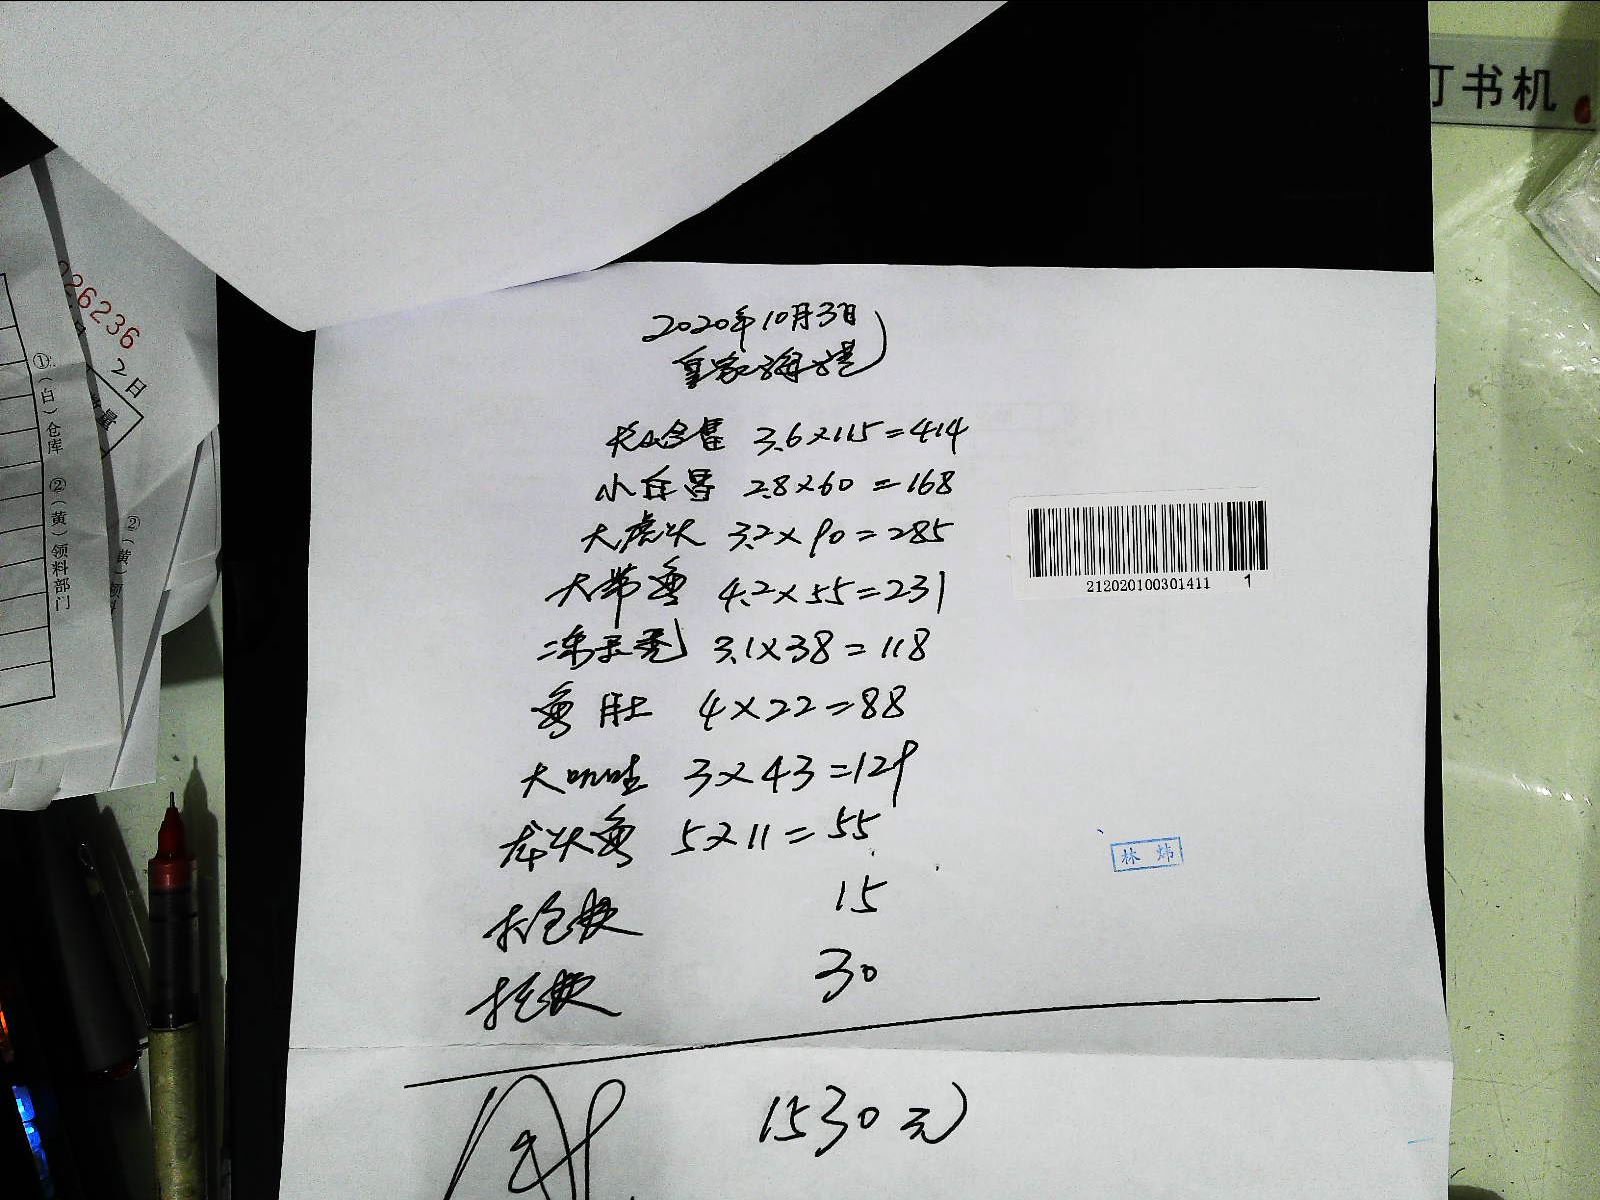 订书机
226236
2日
①(白)仓库 ②(黄)领料部门
②(黄)领料
2020年10月3日
皇家海港
3.6×115=414
小白昌 2.8×60=168
大虎头 3.2×90=285
大带鱼 4.2×55=231
3.1×38=118
鱼肚 4×22=88
大叽蛙 3×43=129
龙头鱼 5×11=55
打包费 15
30
1530元
212020100301411 1
林炜